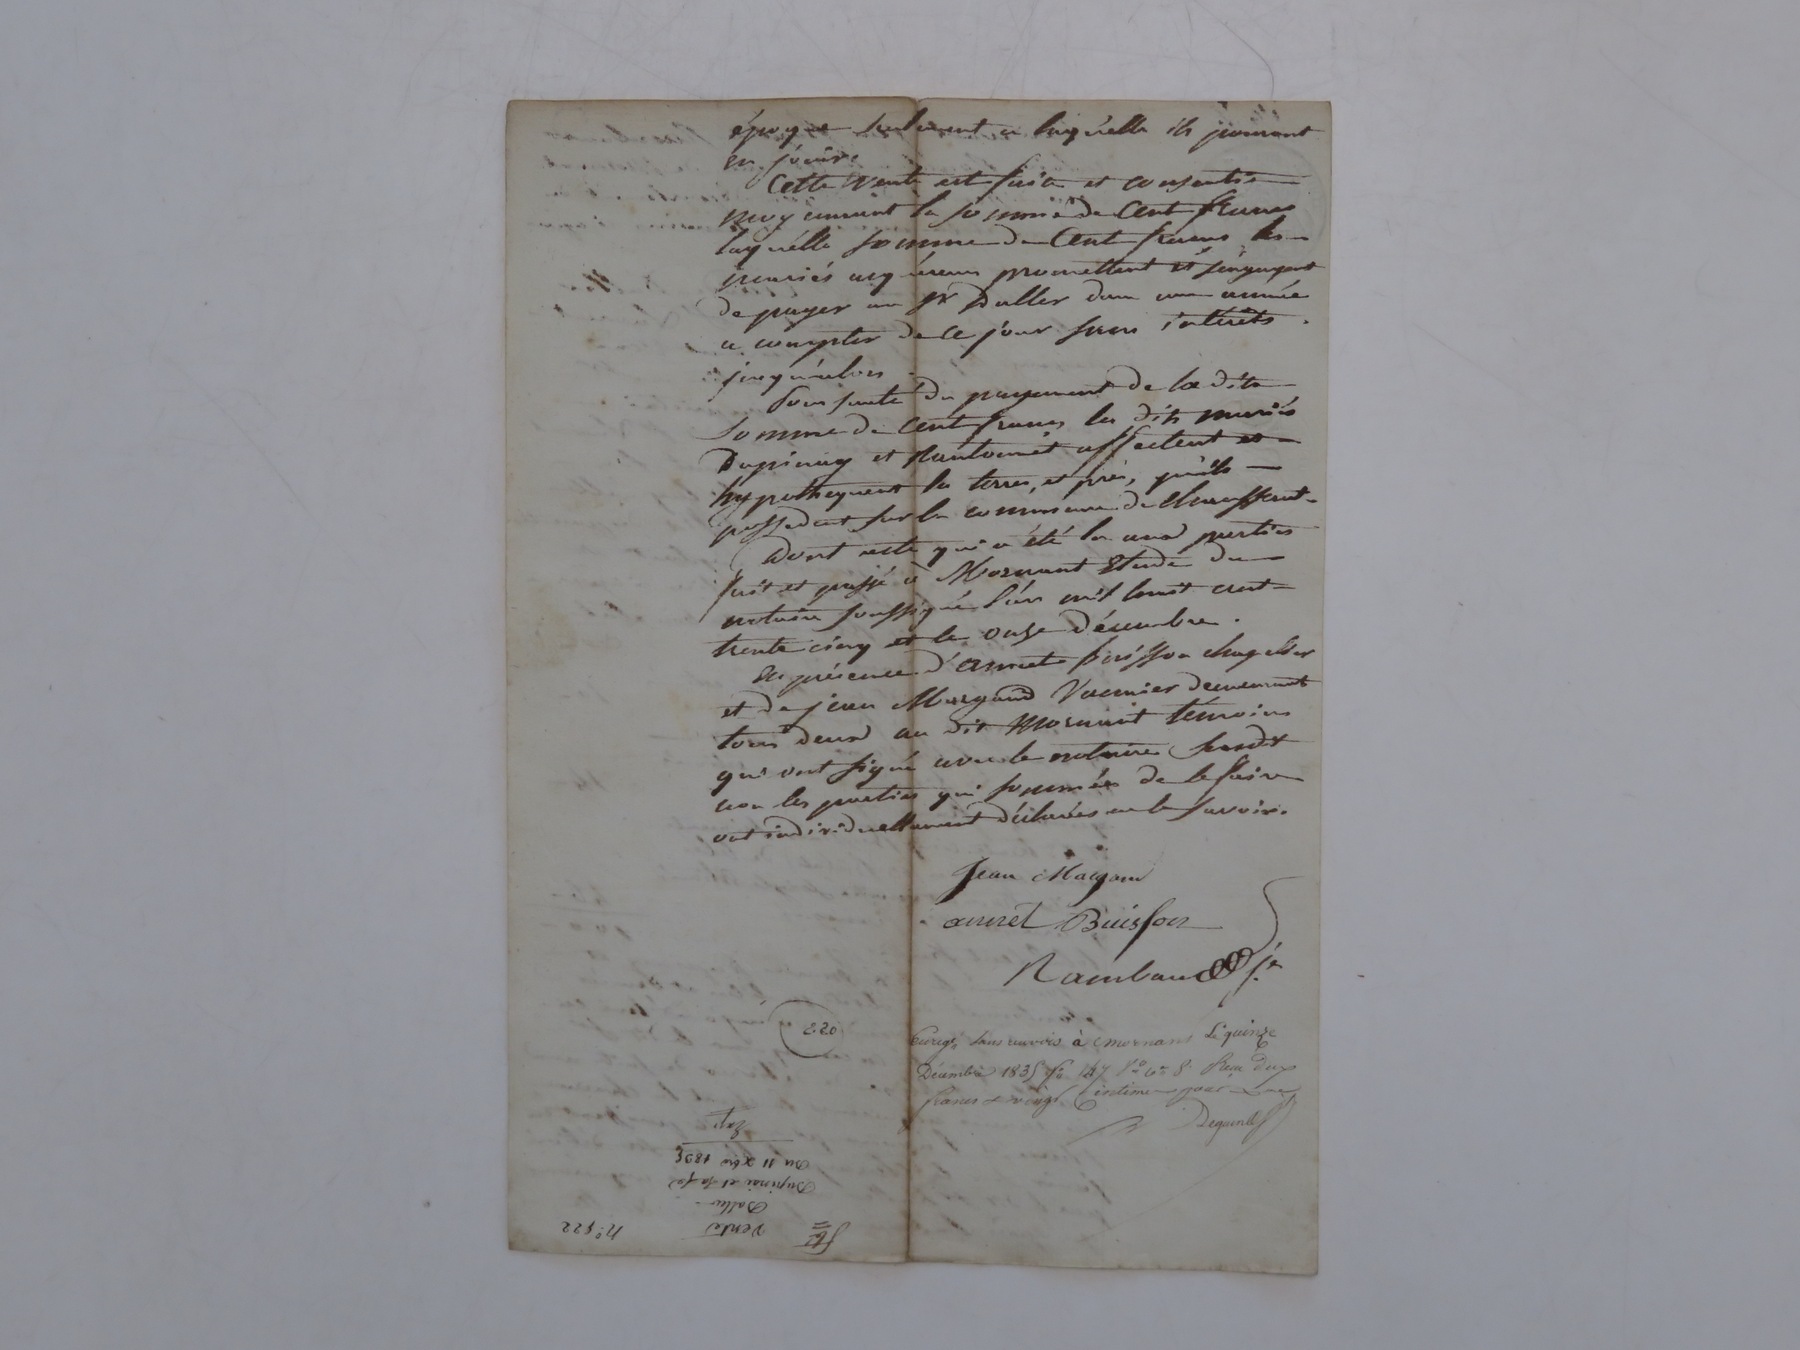 époque seulement a laquélle ils pourront
en jouir.
Cette vente est faite et consentie
moyennant la somme de Cent francs
laquélle somme de Cent francs les
mariés acquéreurs promettent et s'engagent
de payer au Sr Daller dans une année
a compter de ce jour sans intérêts
jusqu'alors
Pour sureté du payement de la dite
somme de Cent francs les dits mariés
Dupinay et affectent et
hypothequent les terres, et prés, qu'ils
possedent sur la commune de Chaussant
Dont acte qui a été lu aux parties
fait et passé à Mornant Etude du
notaire soussigné l'an mil huit cent
trente cinq et le onze décembre.
En présence d'annet Buisson chapelier
et de jean Margand Vannier demeurant
tous deux au dit Mornant témoins
qui ont signé avec le notaire
non les parties qui sommées de le faire
ont individuellement déclarées ne le savoir.
Jean Margand
annet Buisson
Rambaud je
2.20
Enregé sans renvois à Mornant Le quinze
Décembre 1835 fo 147 Vo Ce 8. Reçu deux
francs & vingt Centimes pour
Dequend
No 522
Vente
Daller
Dupinai et sa fe
Du 11 Xbre 1835
Exp.